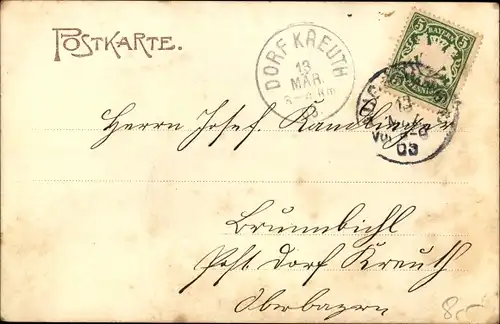 POSTKARTE.
DORF KREUTH
13
MÄR.
8-9 Nm
03
BAYERN
5 5
5 5
PFENNIG
13
03
Herrn Josef Kandlinger
Brunnbichl
Post Dorf Kreuth
Oberbayern
8,-